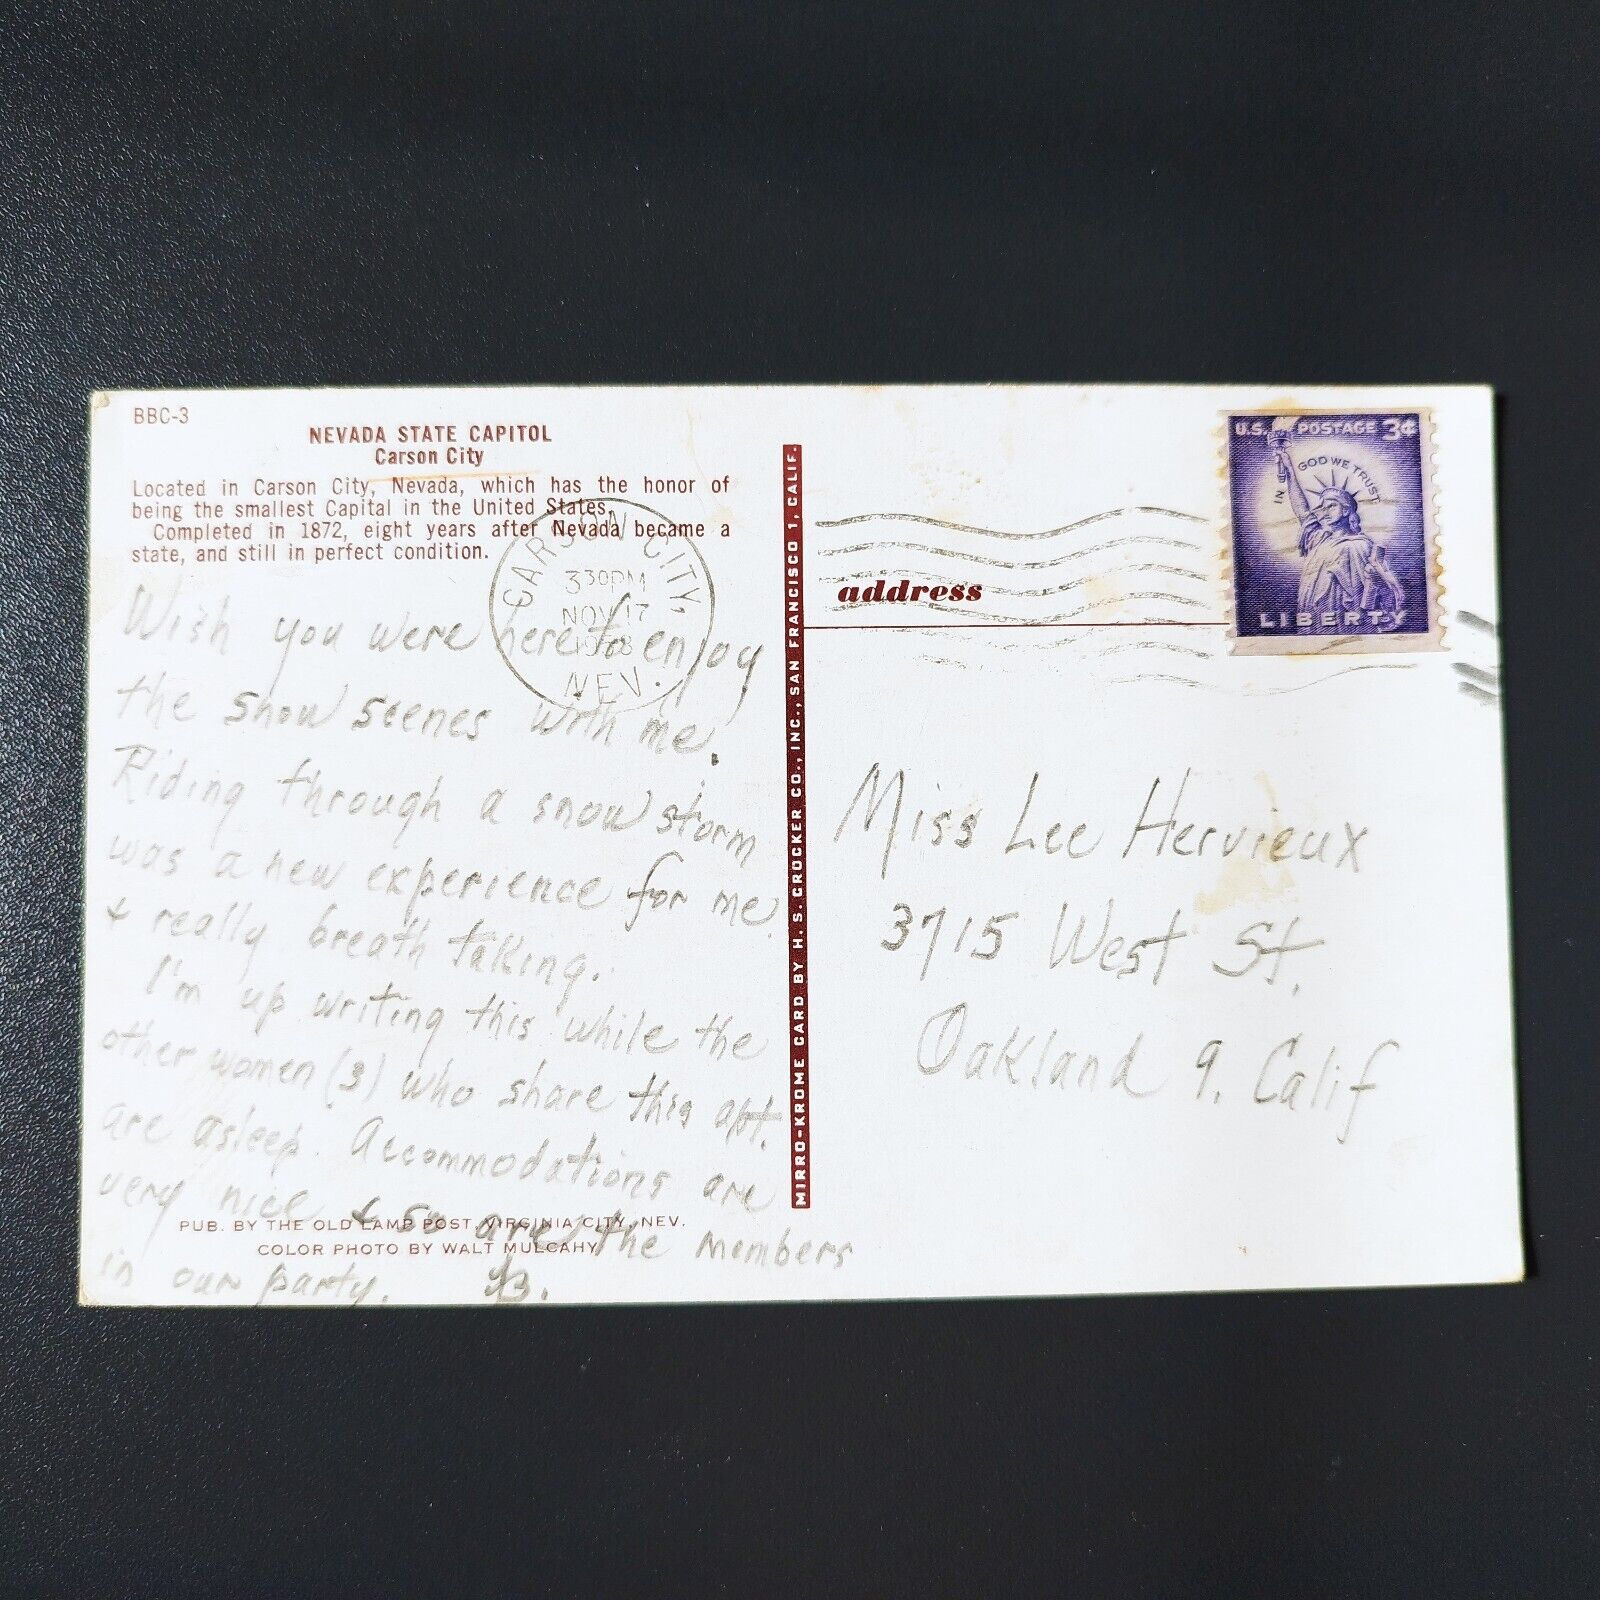 BBC-3
NEVADA STATE CAPITOL
Carson City
Located in Carson City, Nevada, which has the honor of
being the smallest Capital in the United States.
Completed in 1872, eight years after Nevada became a
state, and still in perfect condition.
CARSON CITY,
330PM
NOV 17
NEV.
Wish you were here to enjoy
the snow scenes with me.
Riding through a snow storm
was a new experience for me
+ really breath taking.
I'm up writing this while the
other women (3) who share this apt.
are asleep. Accommodations are
very nice + so are the members
in our party. B.
PUB. BY THE OLD LAMP POST, VIRGINIA CITY, NEV.
COLOR PHOTO BY WALT MULCAHY
MIRRO-KROME CARD BY H. S. CROCKER CO., INC., SAN FRANCISCO 1, CALIF.
address
U.S. POSTAGE 3¢
IN GOD WE TRUST
LIBERTY
Miss Lee Hervieux
3715 West St.
Oakland 9. Calif